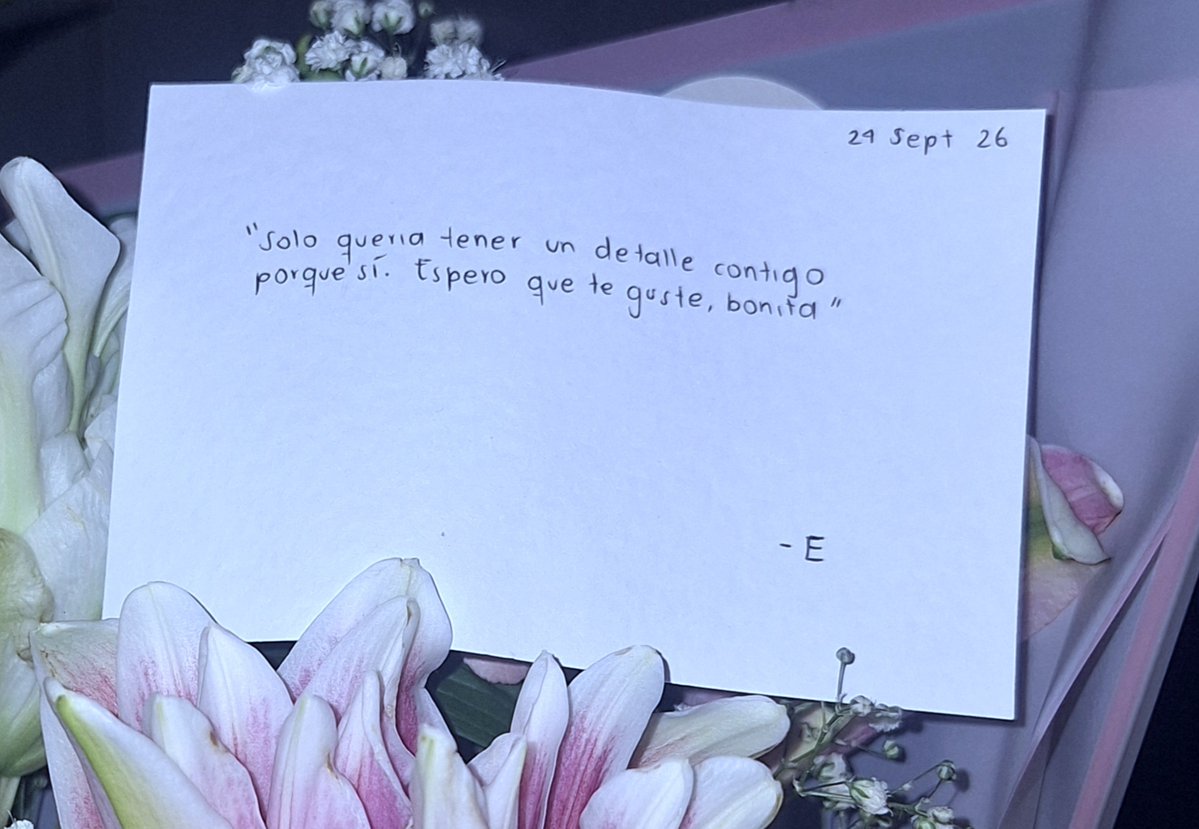 29 Sept 26
"Solo quería tener un detalle contigo
porque sí. Espero que te guste, bonita"
- E